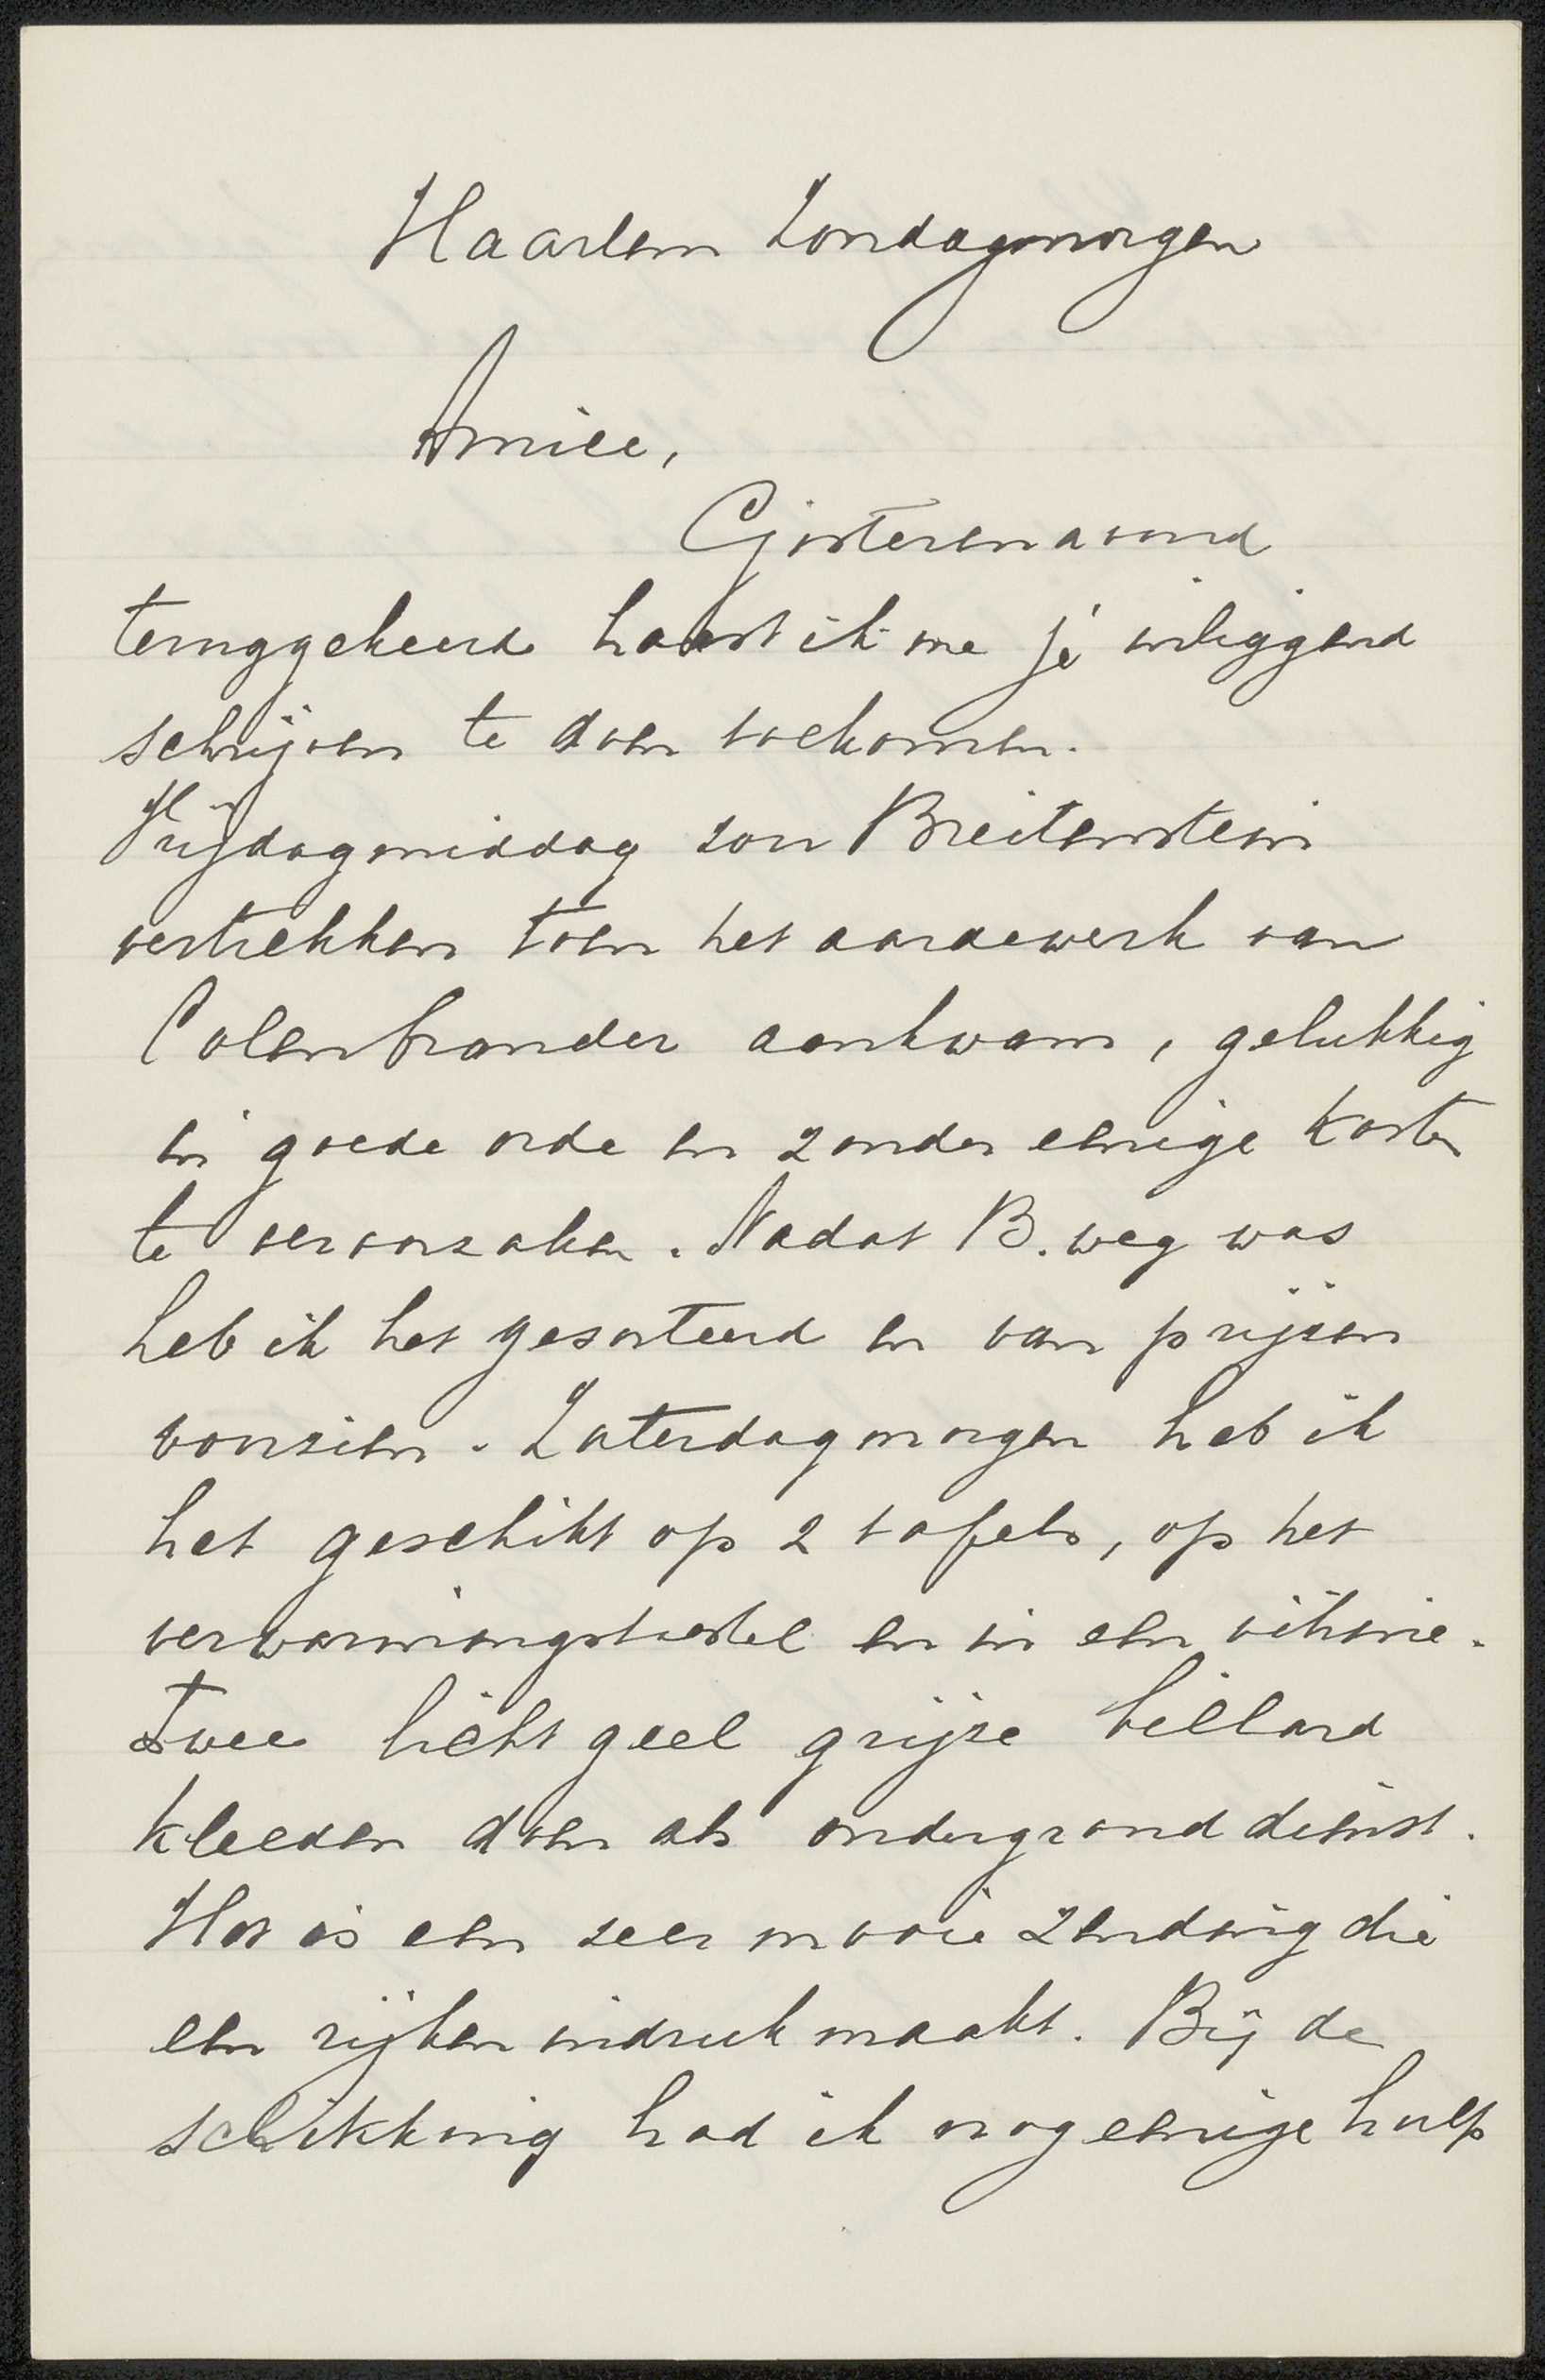 Haarlem Zondagmorgen
Amice,
Gisterenavond
teruggekeerd haast ik me je inliggend
schrijven te doen toekomen.
Vrijdagmiddag zou Breitenstein
vertrekken toen het aardewerk van
Colenbrander aankwam, gelukkig
in goede orde en zonder eenige kosten
te veroorzaken. Nadat B. weg was
heb ik het gesorteerd en van prijzen
voorzien. Zaterdagmorgen heb ik
het geschikt op 2 tafels, op het
verwarmingstoestel en in een vitrine.
Twee licht geel grijze billard
kleeden doen als ondergrond dienst.
Het is een zeer mooie zending die
een rijken indruk maakt. Bij de
schikking had ik nog eenige hulp